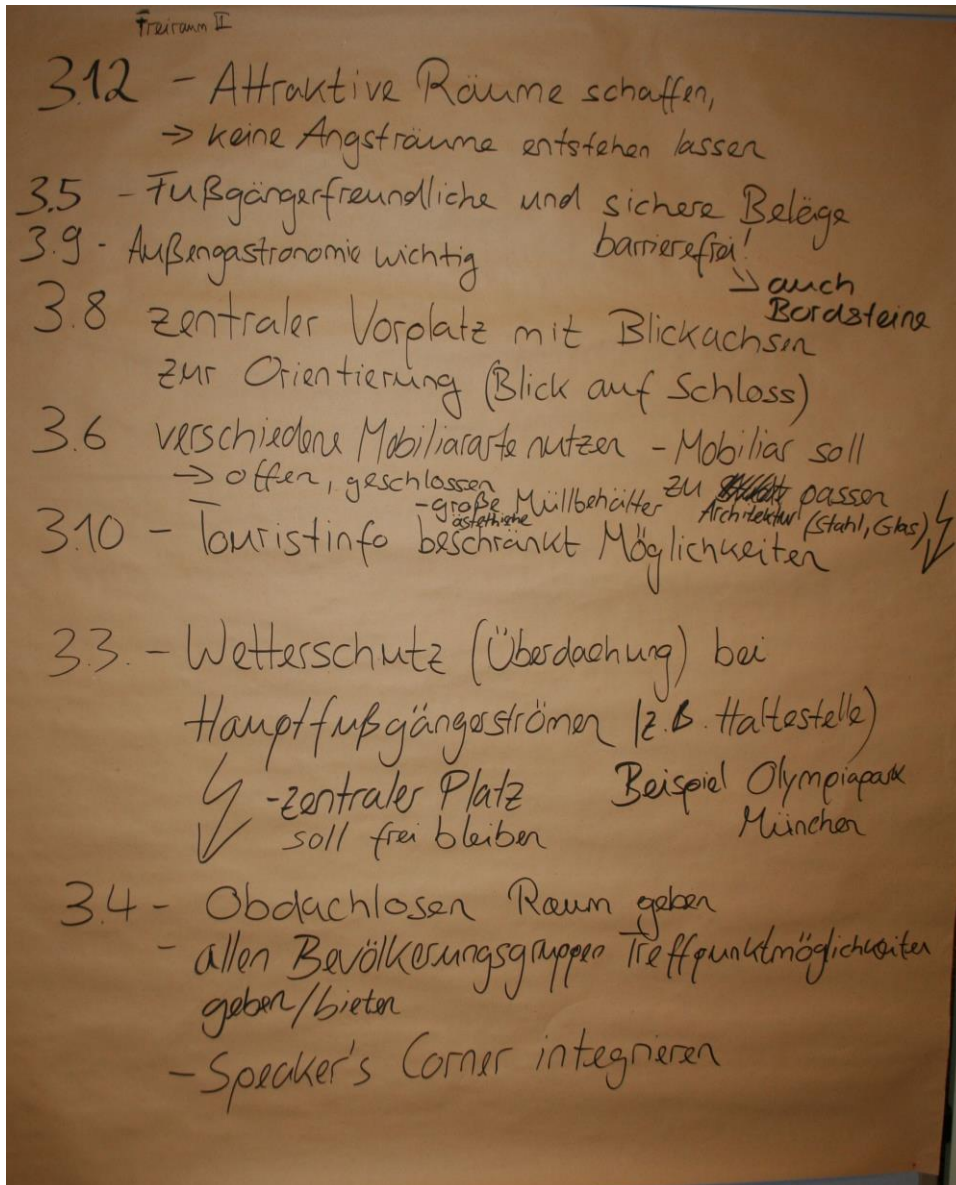 Freiraum II
3.12 - Attraktive Räume schaffen,
→ keine Angsträume entstehen lassen
3.5 - Fußgängerfreundliche und sichere Beläge
barrierefrei!
3.9 - Außengastronomie wichtig
↘ auch
Bordsteine
3.8 zentraler Vorplatz mit Blickachsen
zur Orientierung (Blick auf Schloss)
3.6 verschiedene Mobiliararte nutzen - Mobiliar soll
→ offen, geschlossen
zu passen
Architektur (Stahl, Glas)
- große Müllbehälter
ästethische
3.10 - Touristinfo beschränkt Möglichkeiten
3.3. - Wetterschutz (Überdachung) bei
Hauptfußgängerströmen (z.B. Haltestelle)
- zentraler Platz
soll frei bleiben
Beispiel Olympiapark
München
3.4 - Obdachlosen Raum geben
- allen Bevölkerungsgruppen Treffpunktmöglichkeiten
geben/bieten
- Speaker's Corner integrieren